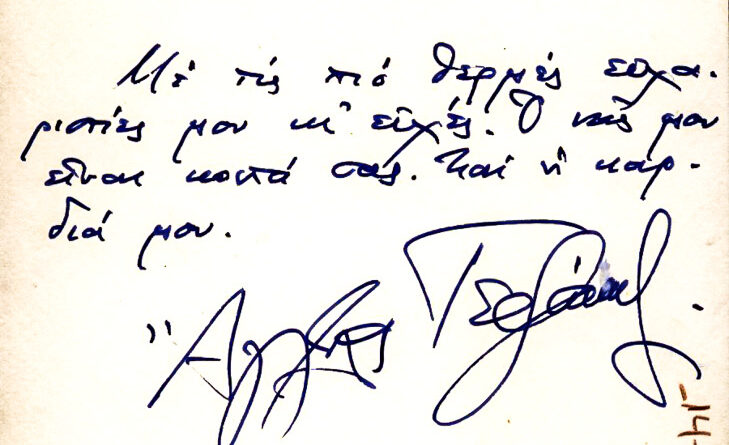 Μὲ τὶς πιὸ θερμὲς εὐχα-
ριστίες μου κι' εὐχές. Ὁ νοῦς μου
εἶναι κοντά σας. Καὶ ἡ καρ-
διά μου.
Ἄγγελος Τερζάκης